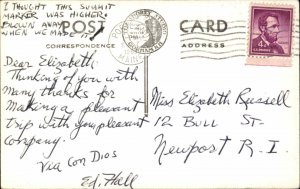 I THOUGHT THIS SUMMIT
MARKER WAS HIGHER.
BLOWN AWAY
WHEN WE MADE IT
POST CARD
CORRESPONDENCE
ADDRESS
MAINE
4¢
Dear Elizabeth:
Thinking of you with
many thanks for
making a pleasant
trip with you pleasant
company.
Via Con Dios
Ed. Hall
Miss Elizabeth Russell
12 BULL ST.
Newport R. I.